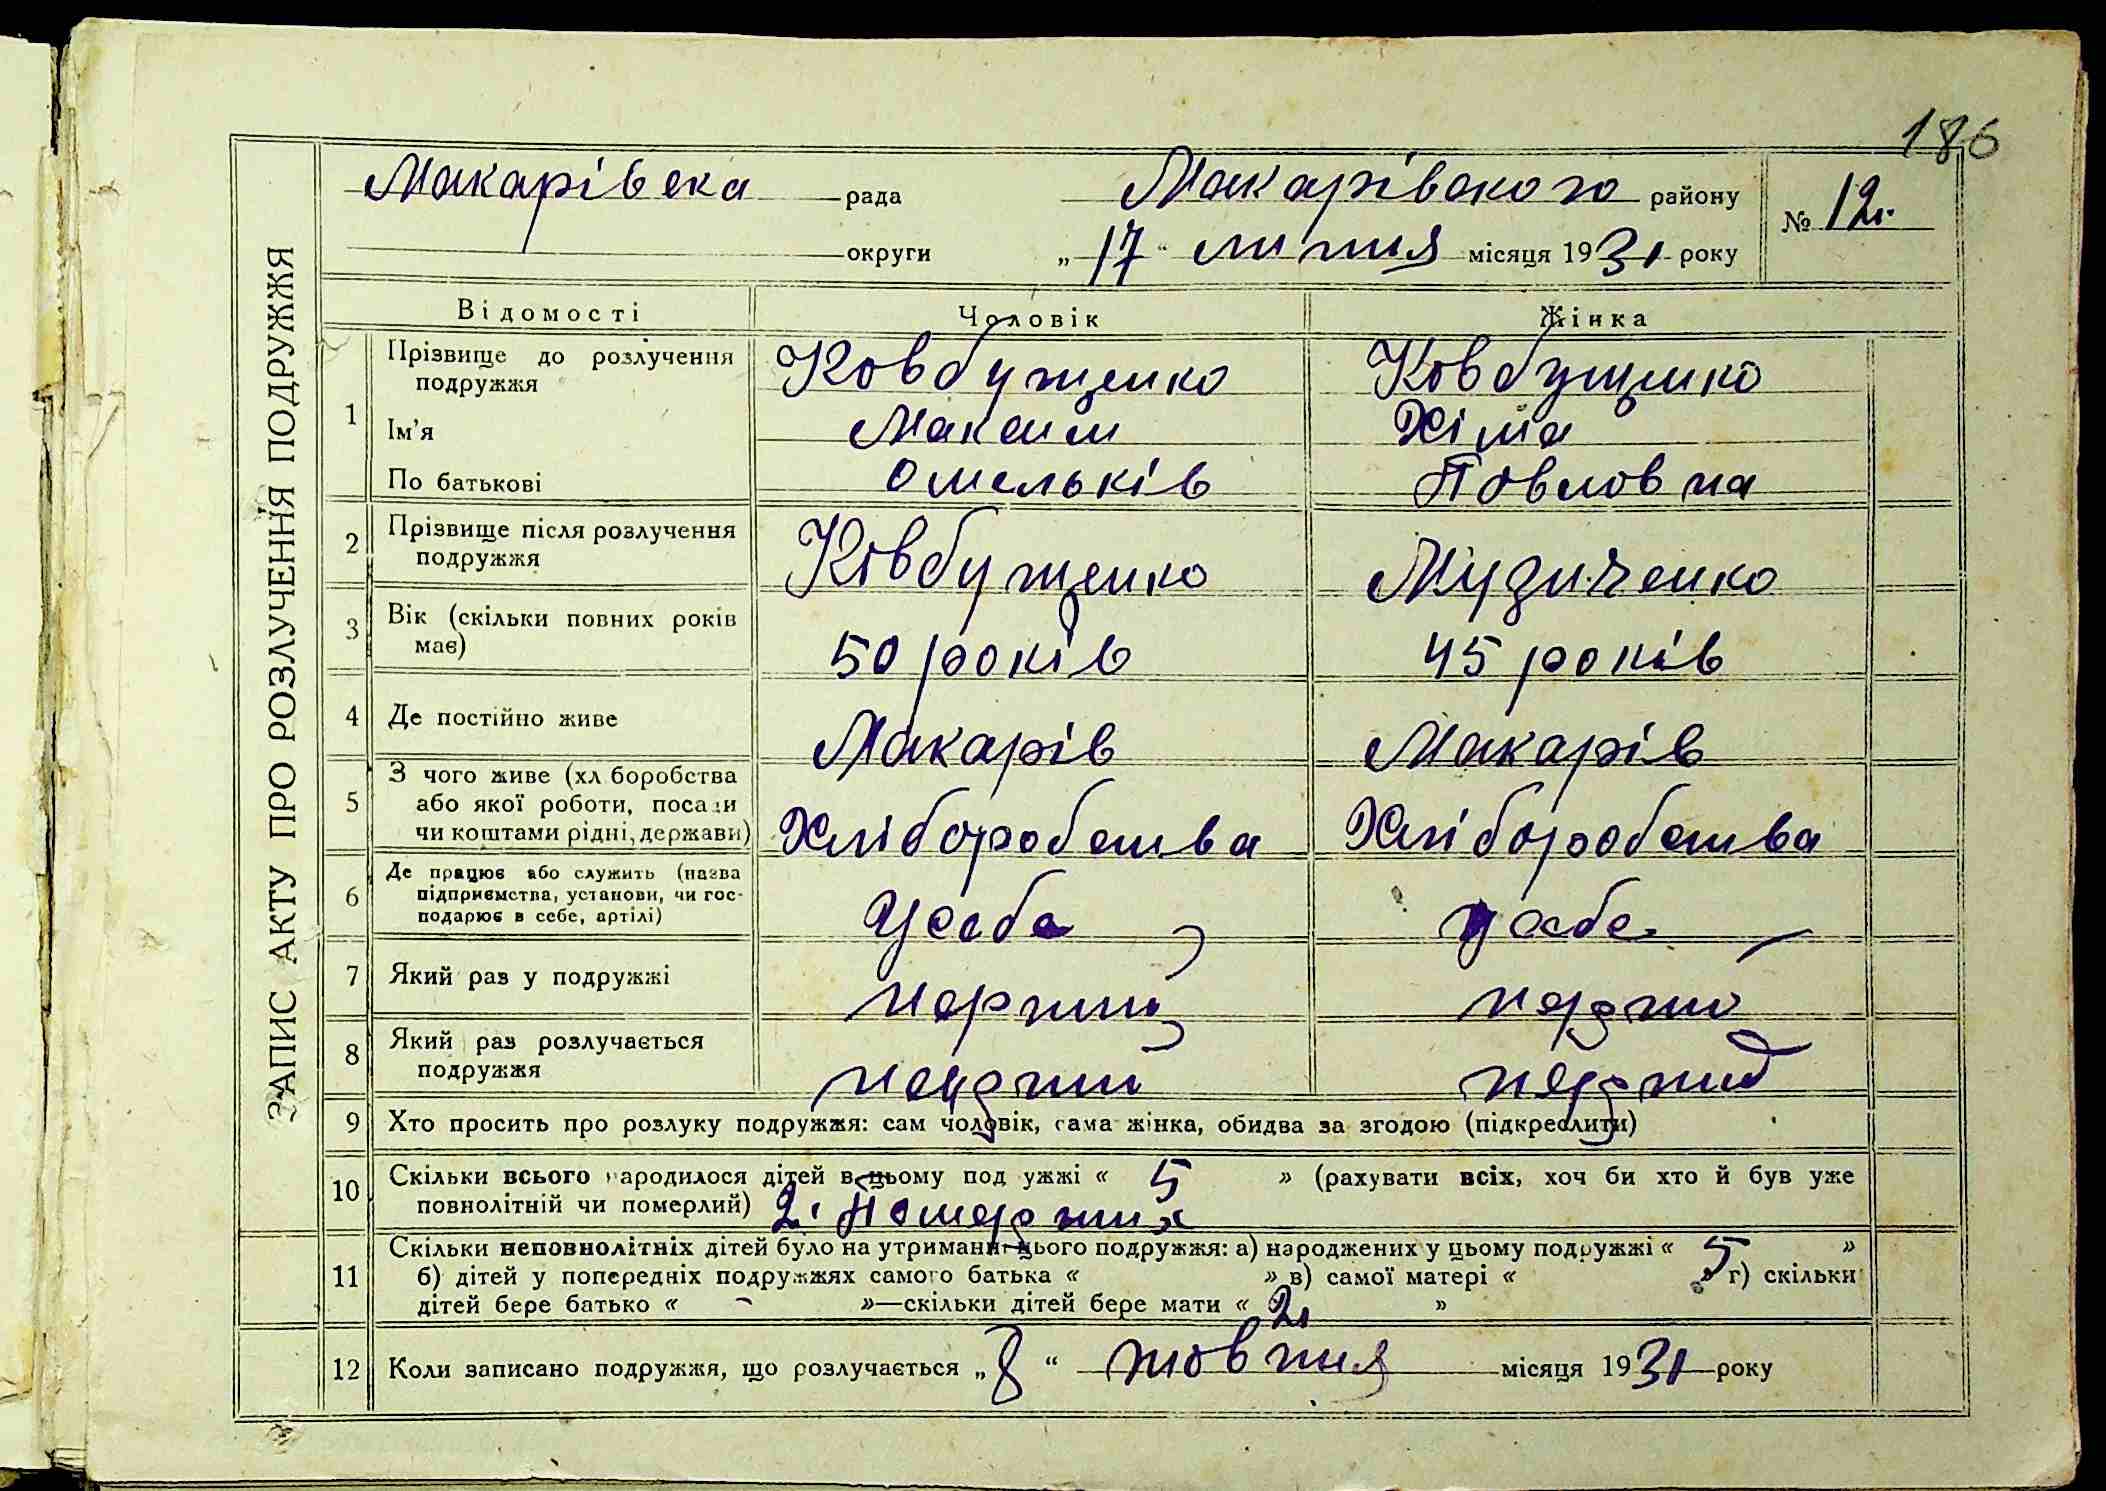 186
ЗАПИС АКТУ ПРО РОЗЛУЧЕННЯ ПОДРУЖЖЯ
Макарівска рада Макарівского району № 12.
округи „17“ липня місяця 1931 року
Відомості Чоловік Жінка
1 Прізвище до розлучення подружжя Ковбущенко Ковбущенко
Ім'я Максим Хіма
По батькові Омельків Повловна
2 Прізвище після розлучення подружжя Ковбущенко Музиченко
3 Вік (скільки повних років має) 50 років 45 років
4 Де постійно живе Макарів Макарів
5 З чого живе (хл боробства або якої роботи, посади чи коштами рідні, держави) Хліборобства Хліборобства
6 Де працює або служить (назва підприємства, установи, чи господарює в себе, артілі) Усебе усебе
7 Який раз у подружжі перший
8 Який раз розлучається подружжя перший
9 Хто просить про розлуку подружжя: сам чоловік, сама жінка, обидва за згодою (підкреслити)
10 Скільки всього народилося дітей в цьому под ужжі « 5 » (рахувати всіх, хоч би хто й був уже
повнолітній чи померлий) 2. Померших
11 Скільки неповнолітніх дітей було на утриманні цього подружжя: а) народжених у цьому подружжі « 5 »
б) дітей у попередніх подружжях самого батька « » в) самої матері « » г) скільки
дітей бере батько « - »—скільки дітей бере мати « 2 »
12 Коли записано подружжя, що розлучається „8“ жовтня місяця 1931 року